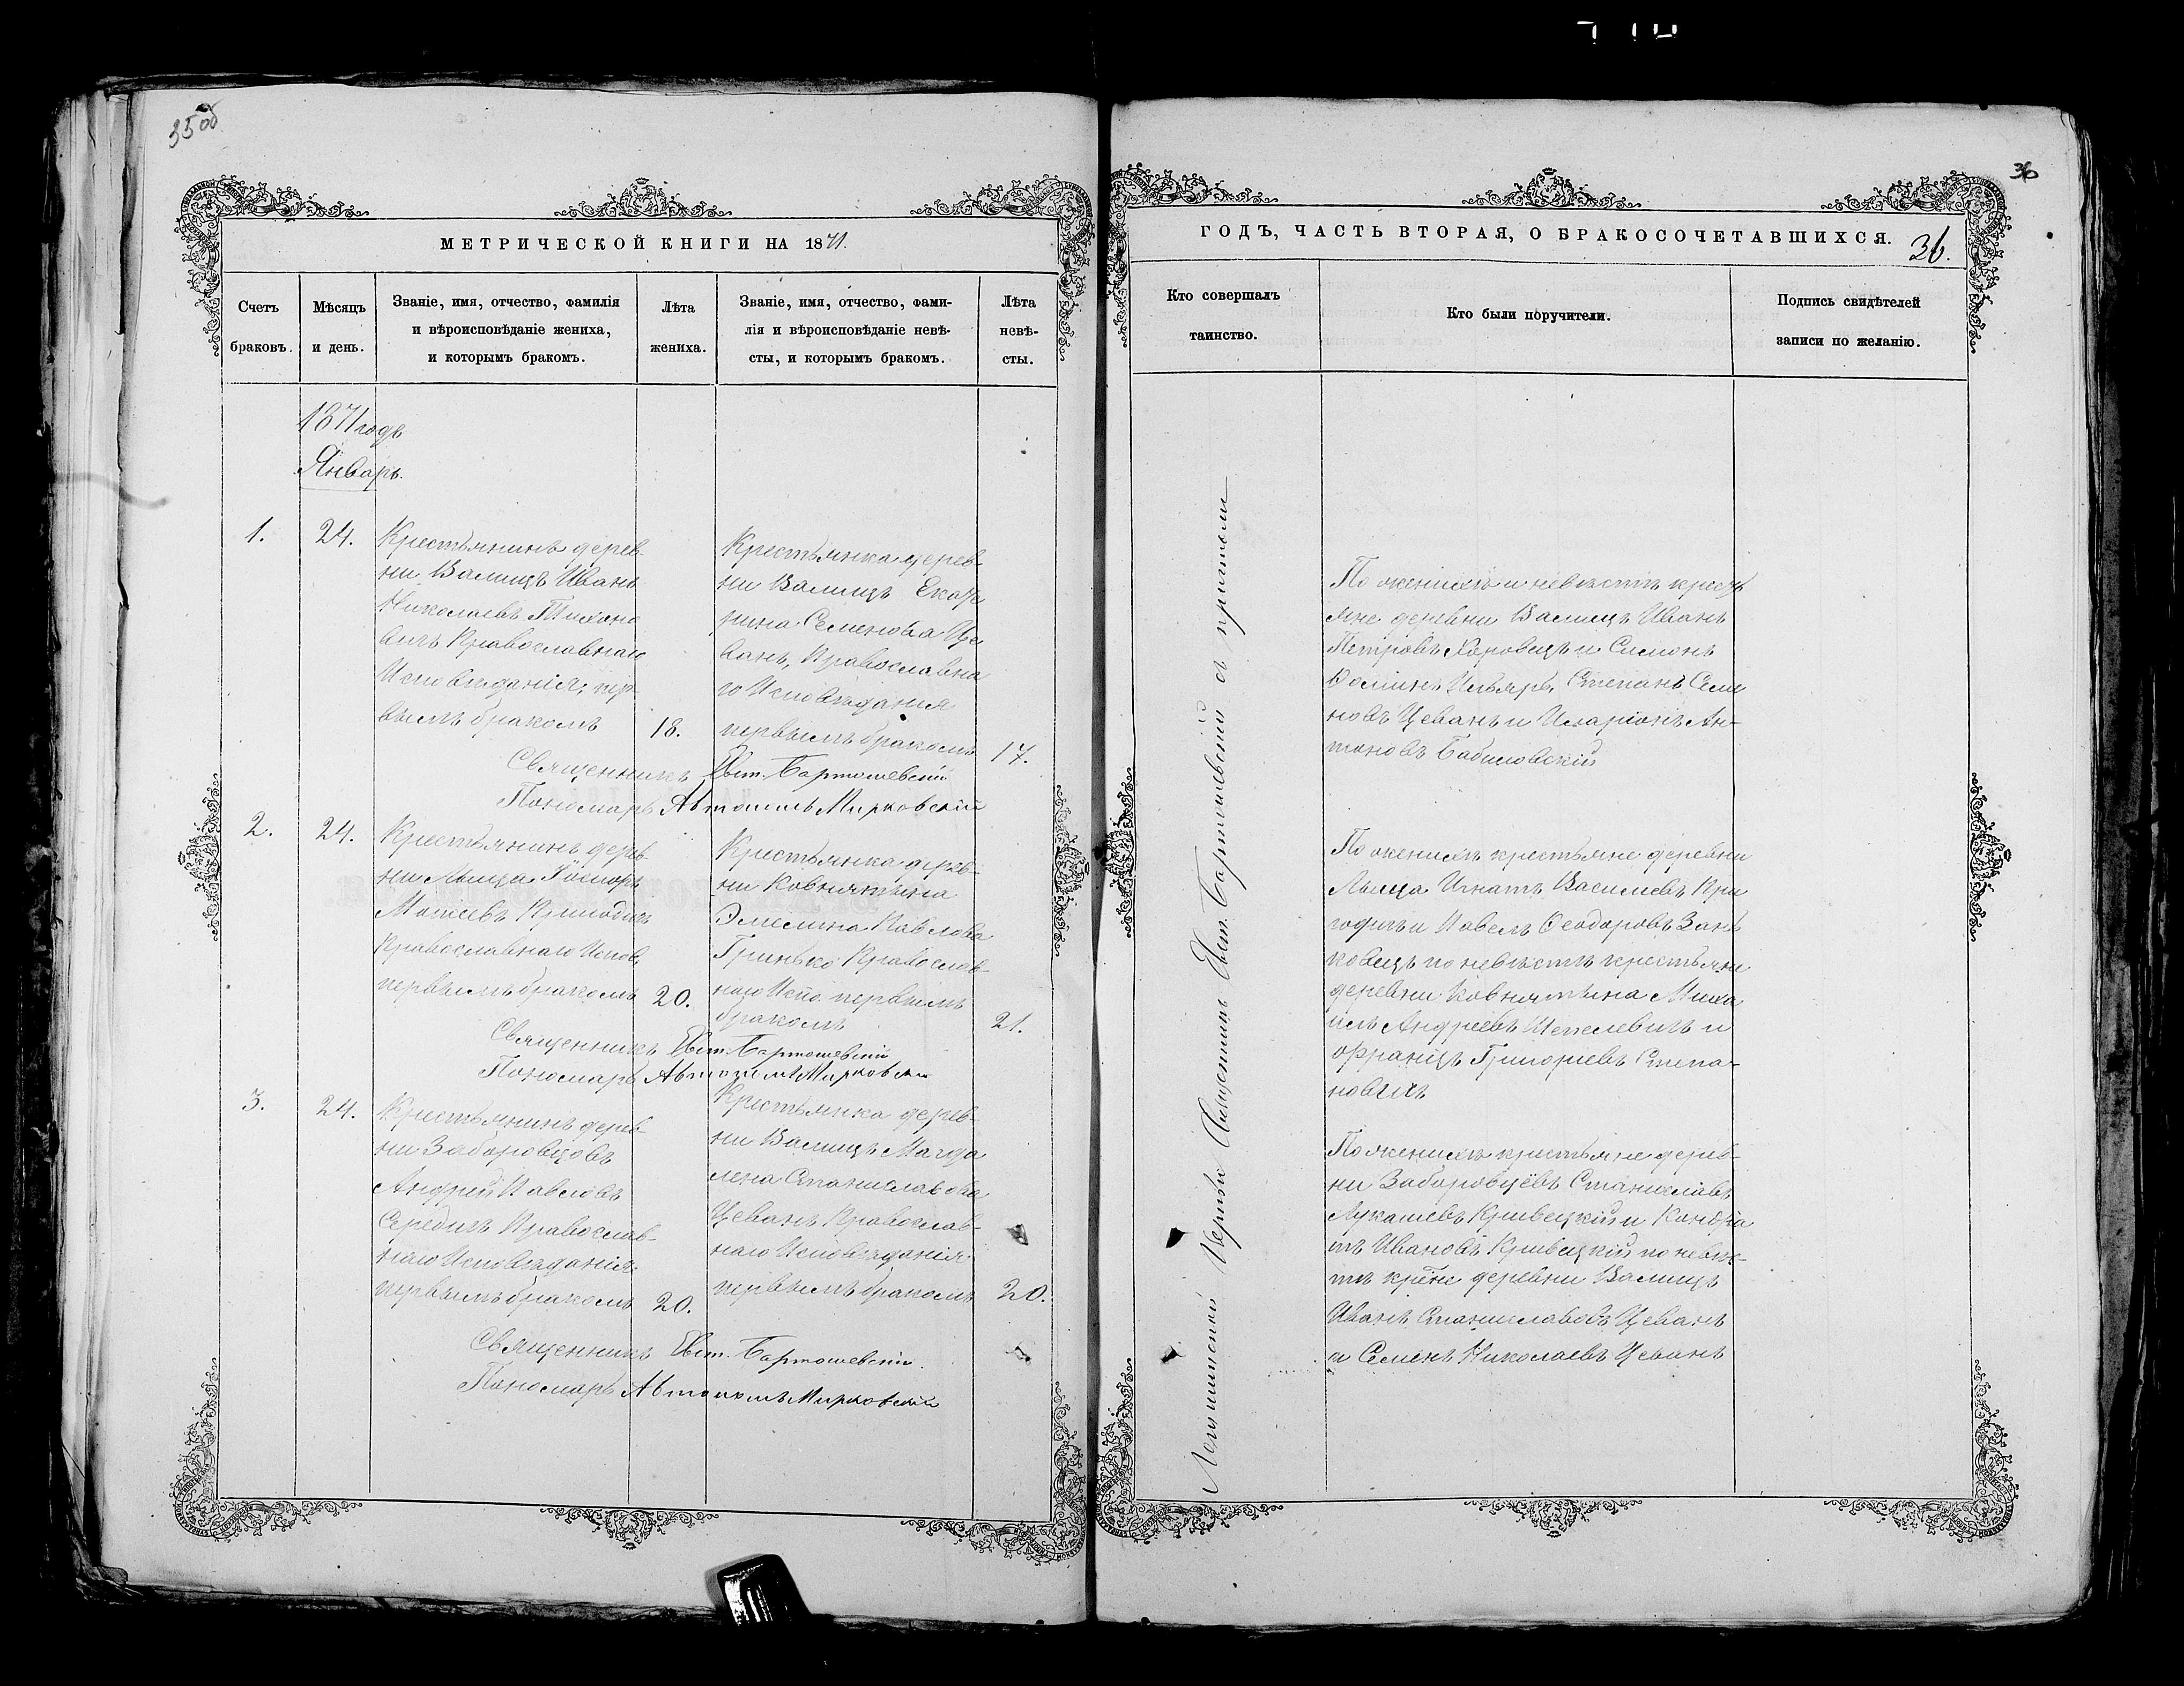 35об
МЕТРИЧЕСКОЙ КНИГИ НА 1871.
Счетъ
браковъ.
Мѣсяцъ
и день.
Званіе, имя, отчество, фамилія
и вѣроисповѣданіе жениха,
и которымъ бракомъ.
Лѣта
жениха.
Званіе, имя, отчество, фами-
лія и вѣроисповѣданіе невѣ-
сты, и которымъ бракомъ.
Лѣта
невѣ-
сты.
1871 годъ
Январь.
1.
24.
Крестьянинъ дерев-
ни Валищъ Иванъ
Николаевъ Тихоно
вичъ Православнаго
Исповѣданія, пер-
вымъ бракомъ
18.
Крестьянка дерев-
ни Валищъ Екате
рина Семенова Це
ванъ, Православна
го Исповѣданія
первымъ бракомъ
17.
Священникъ Евст. Бартошевскій
Пономарь Автономъ Мирковскій
2.
24.
Крестьянинъ дерев-
ни Лыща
Православнаго Испов.
первымъ бракомъ
20.
Крестьянка дерев-
ни Ковнятина
Эмелина Павлова
Гринько Православ-
наго Испо. первымъ
бракомъ
21.
Священникъ Евст. Бартошевскій
Пономарь Автономъ Мирковскій
3.
24.
Крестьянинъ дерев-
ни Заборовцовъ
Андрей Павловъ
Середичъ Православ-
наго Исповѣданія
первымъ бракомъ
20.
Крестьянка дерев-
ни Валищъ Магда
лена Станиславова
Цеванъ Православ-
наго Исповѣданія
первымъ бракомъ
20.
Священникъ Евст. Бартошевскій.
Пономарь Автономъ Мирковскій
36
ГОДЪ, ЧАСТЬ ВТОРАЯ, О БРАКОСОЧЕТАВШИХСЯ.
36.
Кто совершалъ
таинство.
Кто были поручители.
Подпись свидѣтелей
записи по желанію.
Церкви Священникъ Евст. Бартошевскій съ причтомъ
По женихѣ и невѣстѣ кресть
яне деревни Валищъ Иванъ
Петровъ и Симонъ
Степанъ Семе
новъ Цеванъ и Иларіонъ Ан-
тоновъ Бабиловскій
По женихѣ крестьяне деревни
Лыща Игнатъ Василіевъ Кри
и Павелъ Ѳеодоровъ Зань
ковецъ по невѣстѣ крестьяне
деревни Ковнятина Миха
илъ Андреевъ Шепелевичъ и
Францъ Григорьевъ Степа-
новичъ
По женихѣ крестьяне дерев-
ни Заборовцевъ Станиславъ
Лукашевъ Кривецкій и Кондра
тъ Ивановъ Кривецкій по невѣс-
тѣ крѣне деревни Валищъ
Иванъ Станиславовъ Цеванъ
и Семенъ Николаевъ Цеванъ